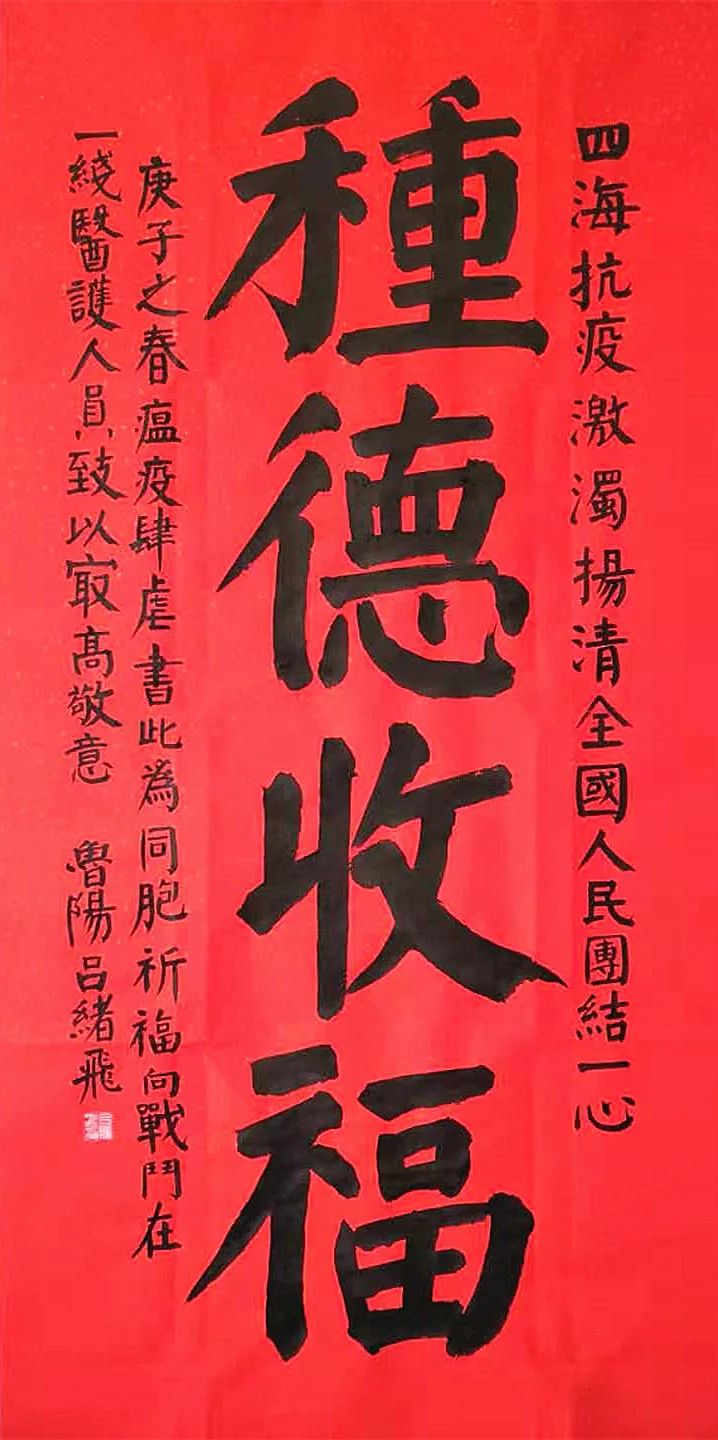 四海抗疫激濁揚清全國人民團結一心
種德收福
庚子之春瘟疫肆虐書此為同胞祈福向戰鬥在
一綫醫護人員致以㝡高敬意 魯陽呂緒飛